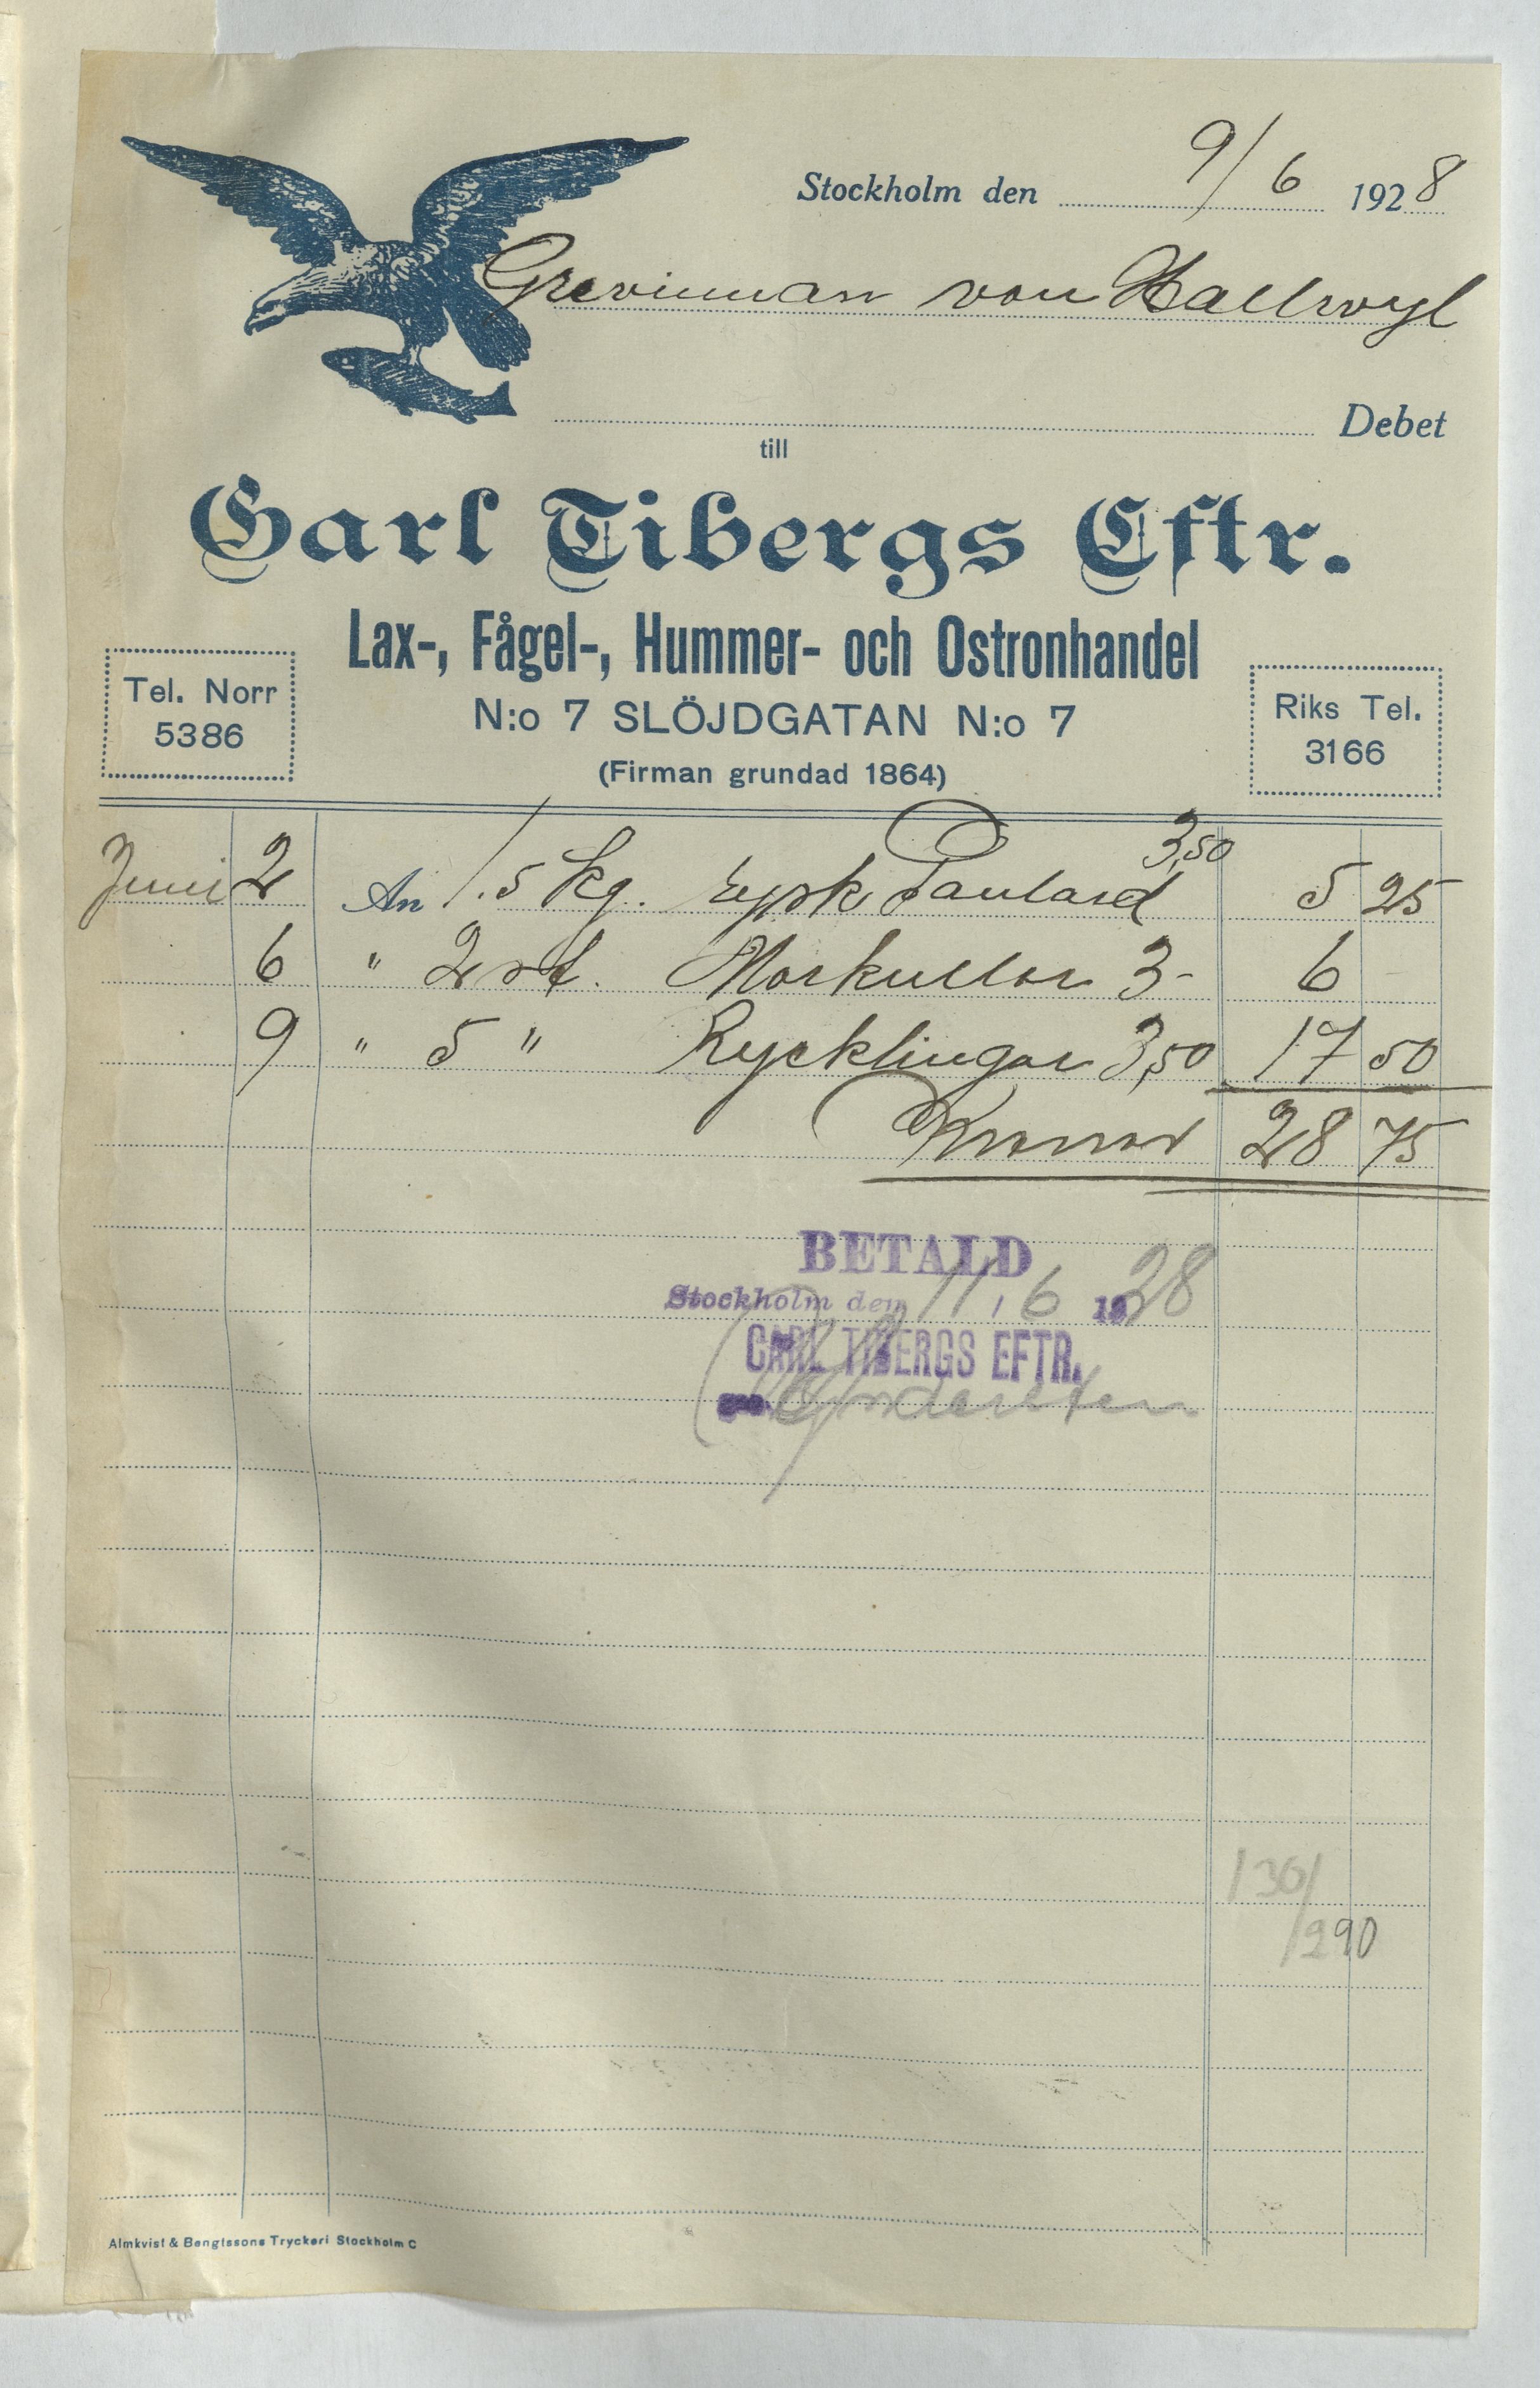 Stockholm den 9/6 1928
Grevinnan von Hallwyl
Debet
till
Carl Tibergs Eftr.
Lax-, Fågel-, Hummer- och Ostronhandel
Tel. Norr
5386
N:o 7 SLÖJDGATAN N:o 7
(Firman grundad 1864)
Riks Tel.
3166
Juni 2 An 1.5 kg. rysk Poulard 3,50 5 25
6 " 2 st. Morkullor 3- 6 -
9 " 5 " Kycklingar 3,50 17 50
Kronor 28 75
BETALD
Stockholm den 11/6 1928
CARL TIBERGS EFTR.
130/
/290
Almkvist & Bengtssons Tryckeri Stockholm C